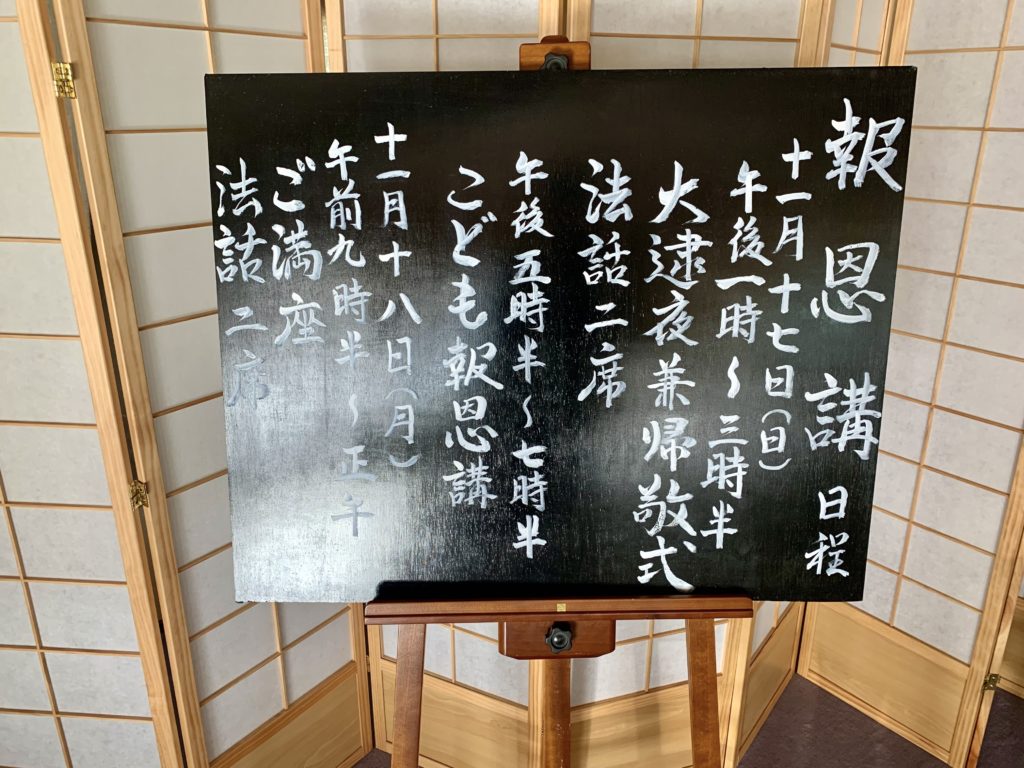 報恩講 日程
十一月十七日(日)
午後一時～三時半
大逮夜兼帰敬式
法話二席
午後五時半～七時半
こども報恩講
十一月十八日(月)
午前九時半～正午
ご満座
法話二席